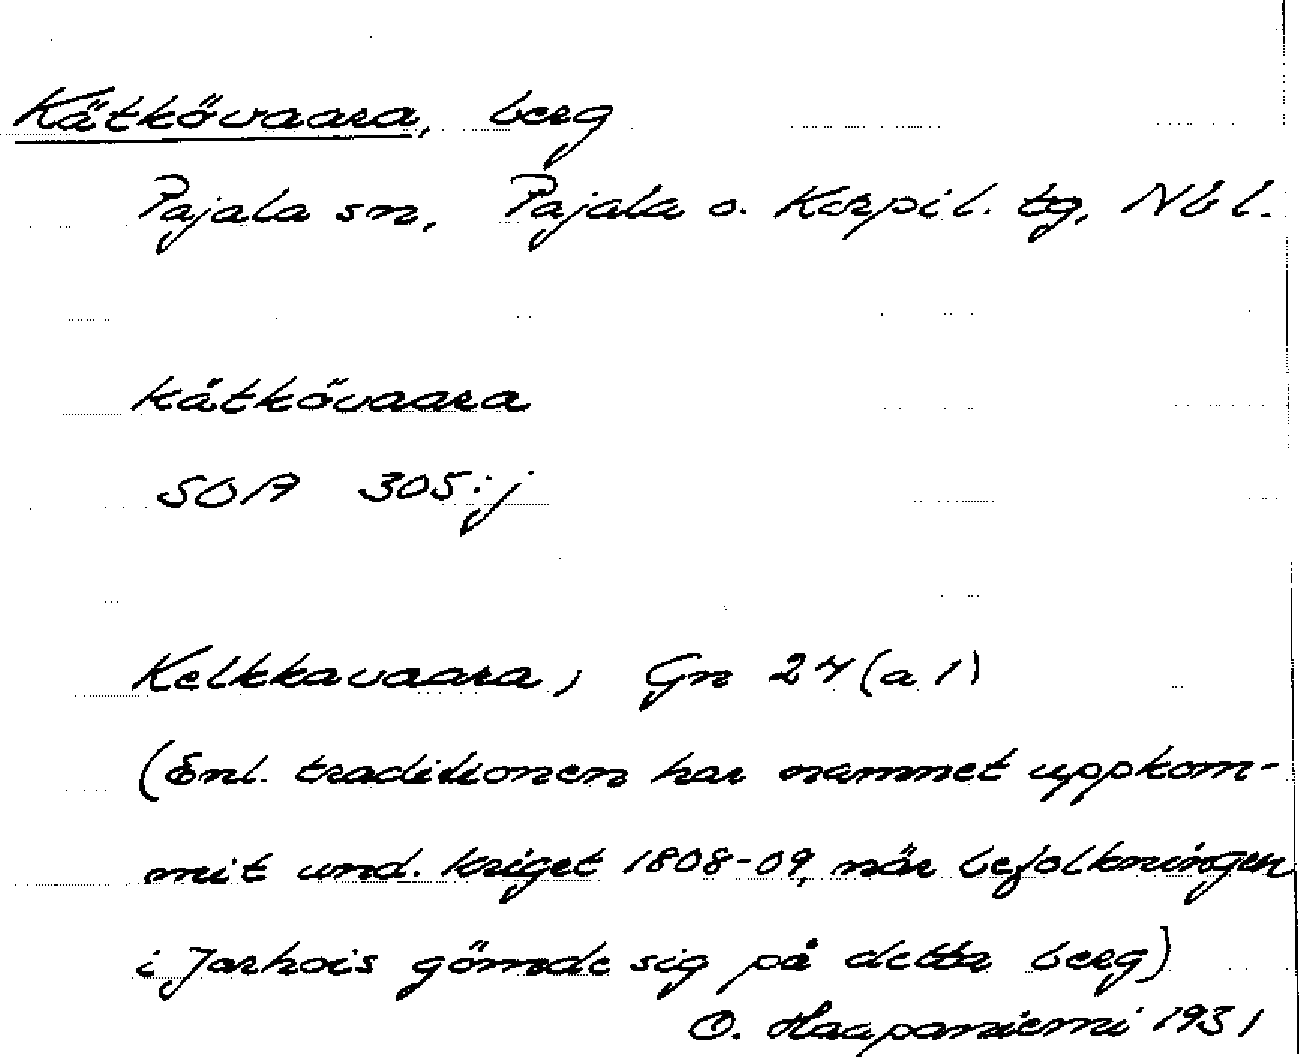 Kätkövaara, berg
Pajala sn, Pajala o. Korpil. tg, Nbl.
kätkövaara
SOA 305:j
Kelkkavaara, Gn 24 (a 1)
(Enl. traditionen har namnet uppkom-
mit und. kriget 1808-09, när befolkningen
i Jarhois gömde sig på detta berg)
O. Haapaniemi 1931